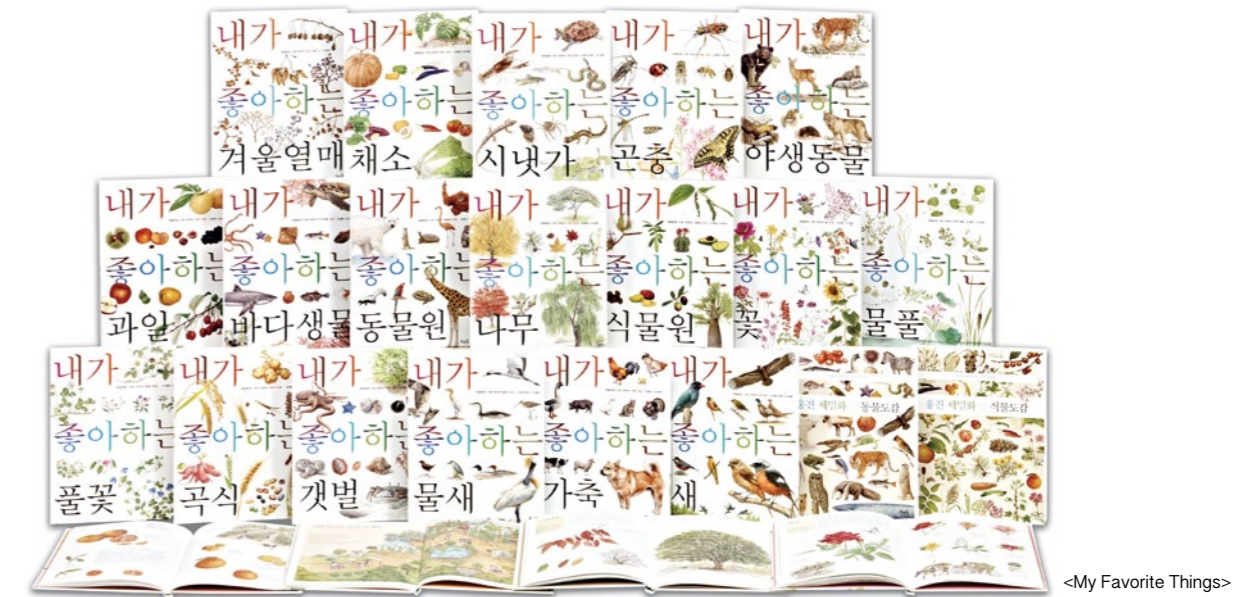 내가 좋아하는 겨울열매
내가 좋아하는 채소
내가 좋아하는 시냇가
내가 좋아하는 곤충
내가 좋아하는 야생동물
내가 좋아하는 과일
내가 좋아하는 바다생물
내가 좋아하는 동물원
내가 좋아하는 나무
내가 좋아하는 식물원
내가 좋아하는 꽃
내가 좋아하는 물풀
내가 좋아하는 풀꽃
내가 좋아하는 곡식
내가 좋아하는 갯벌
내가 좋아하는 물새
내가 좋아하는 가축
내가 좋아하는 새
웅진 세밀화 동물도감
웅진 세밀화 식물도감
<My Favorite Things>